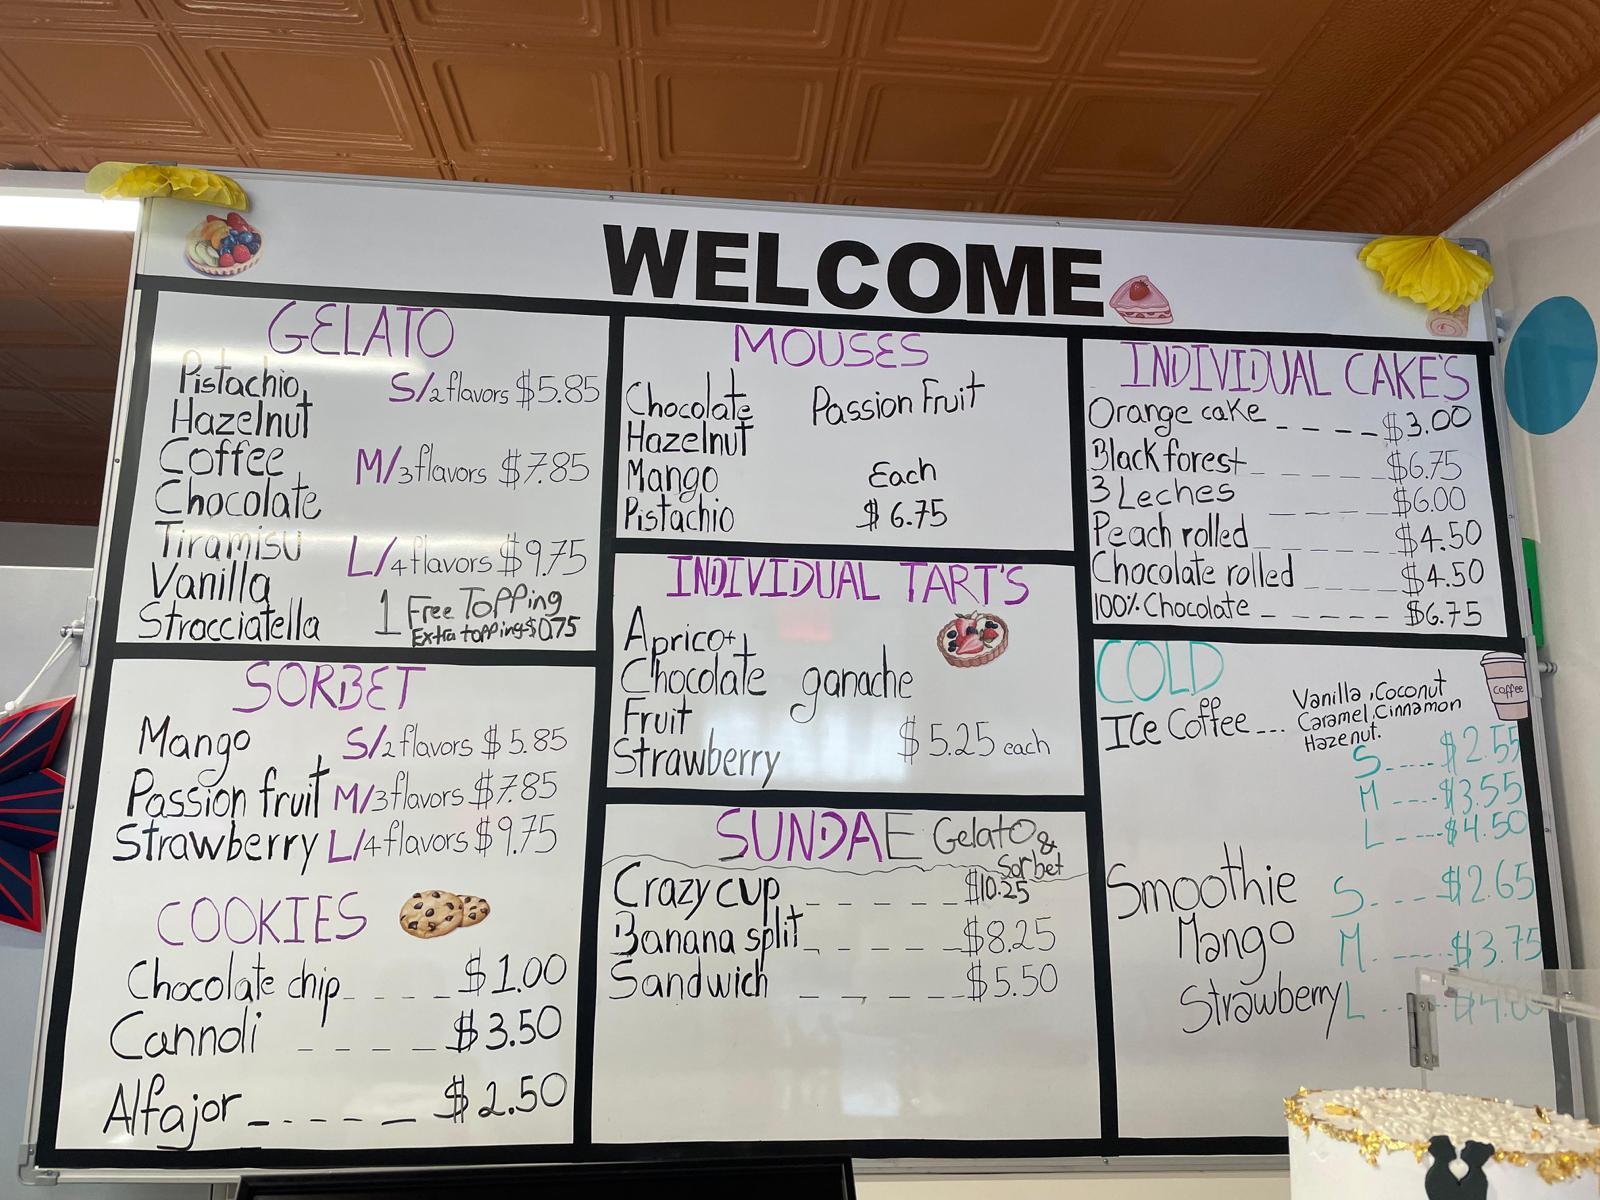 WELCOME
GELATO
Pistachio, S/2 flavors $5.85
Hazelnut
Coffee M/3 flavors $7.85
Chocolate
Tiramisu L/4 flavors $9.75
Vanilla
Stracciatella
1 Free Topping
Extra topping $0.75
SORBET
Mango S/2 flavors $5.85
Passion fruit M/3 flavors $7.85
Strawberry L/4 flavors $9.75
COOKIES
Chocolate chip $1.00
Cannoli $3.50
Alfajor $2.50
MOUSES
Chocolate Passion Fruit
Hazelnut
Mango Each
Pistachio $6.75
INDIVIDUAL TART'S
Apricot
Chocolate ganache
Fruit
Strawberry $5.25 each
SUNDAE Gelato &
Sorbet
Crazy cup $10.25
Banana split $8.25
Sandwich $5.50
INDIVIDUAL CAKE'S
Orange cake $3.00
Black forest $6.75
3 Leches $6.00
Peach rolled $4.50
Chocolate rolled $4.50
100% Chocolate $6.75
COLD
coffee
Ice Coffee Vanilla, Coconut
Caramel, Cinnamon
Hazenut.
S $2.55
M $3.55
L $4.50
Smoothie S $2.65
Mango M $3.75
Strawberry L